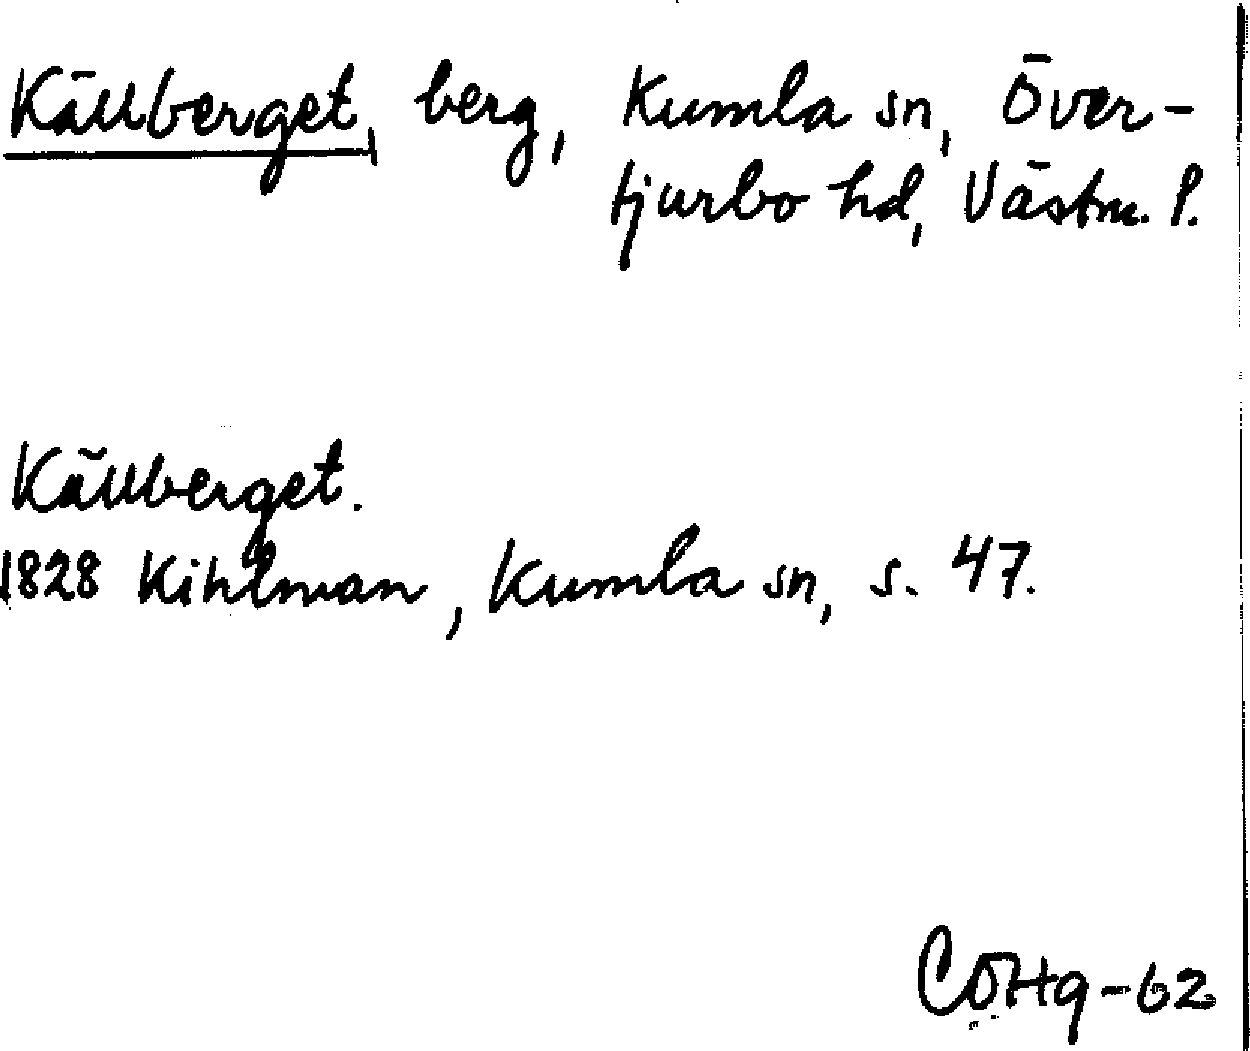 Källberget, berg, Kumla sn, Över-
tjurbo hd, Västm. l.
Källberget.
1828 Kihlman, Kumla sn, s. 47.